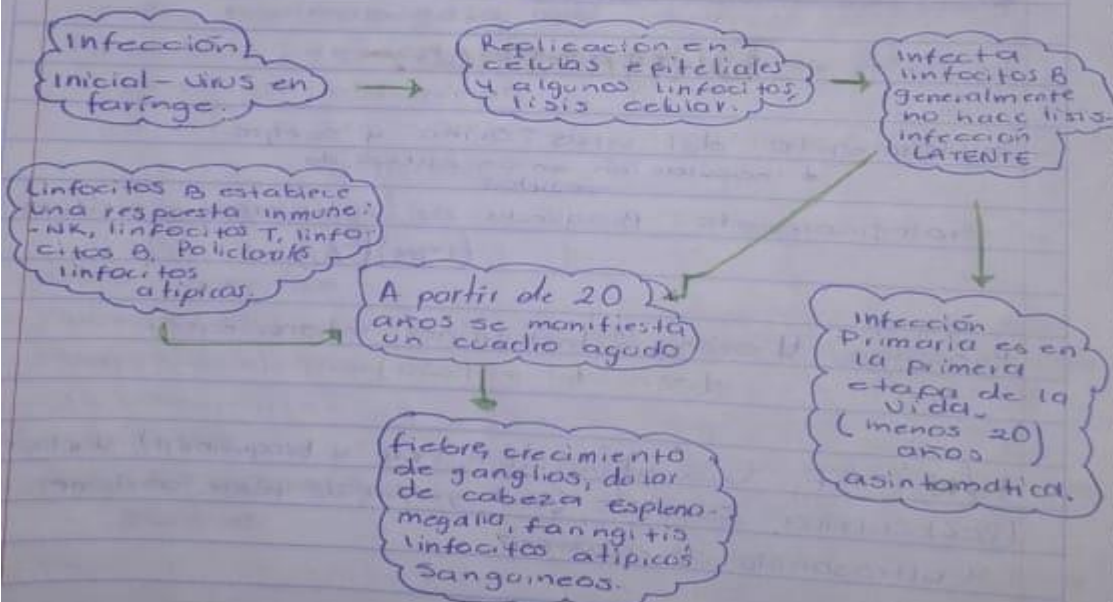 Infección
inicial - virus en
faringe.
Replicación en
células epiteliales
y algunos linfocitos,
lisis celular.
Infecta
linfocitos B
generalmente
no hace lisis-
infección
LATENTE
Linfocitos B establece
una respuesta inmune:
-NK, linfocitos T, linfo
citos B, Policlonales
linfocitos
atipicos.
A partir de 20
años se manifiesta
un cuadro agudo
infección
Primaria es en
la primera
etapa de la
vida-
(menos 20)
años
asintomática.
fiebre, crecimiento
de ganglios, dolor
de cabeza espleno-
megalia, faringitis
linfocitos atipicos
Sanguineos.